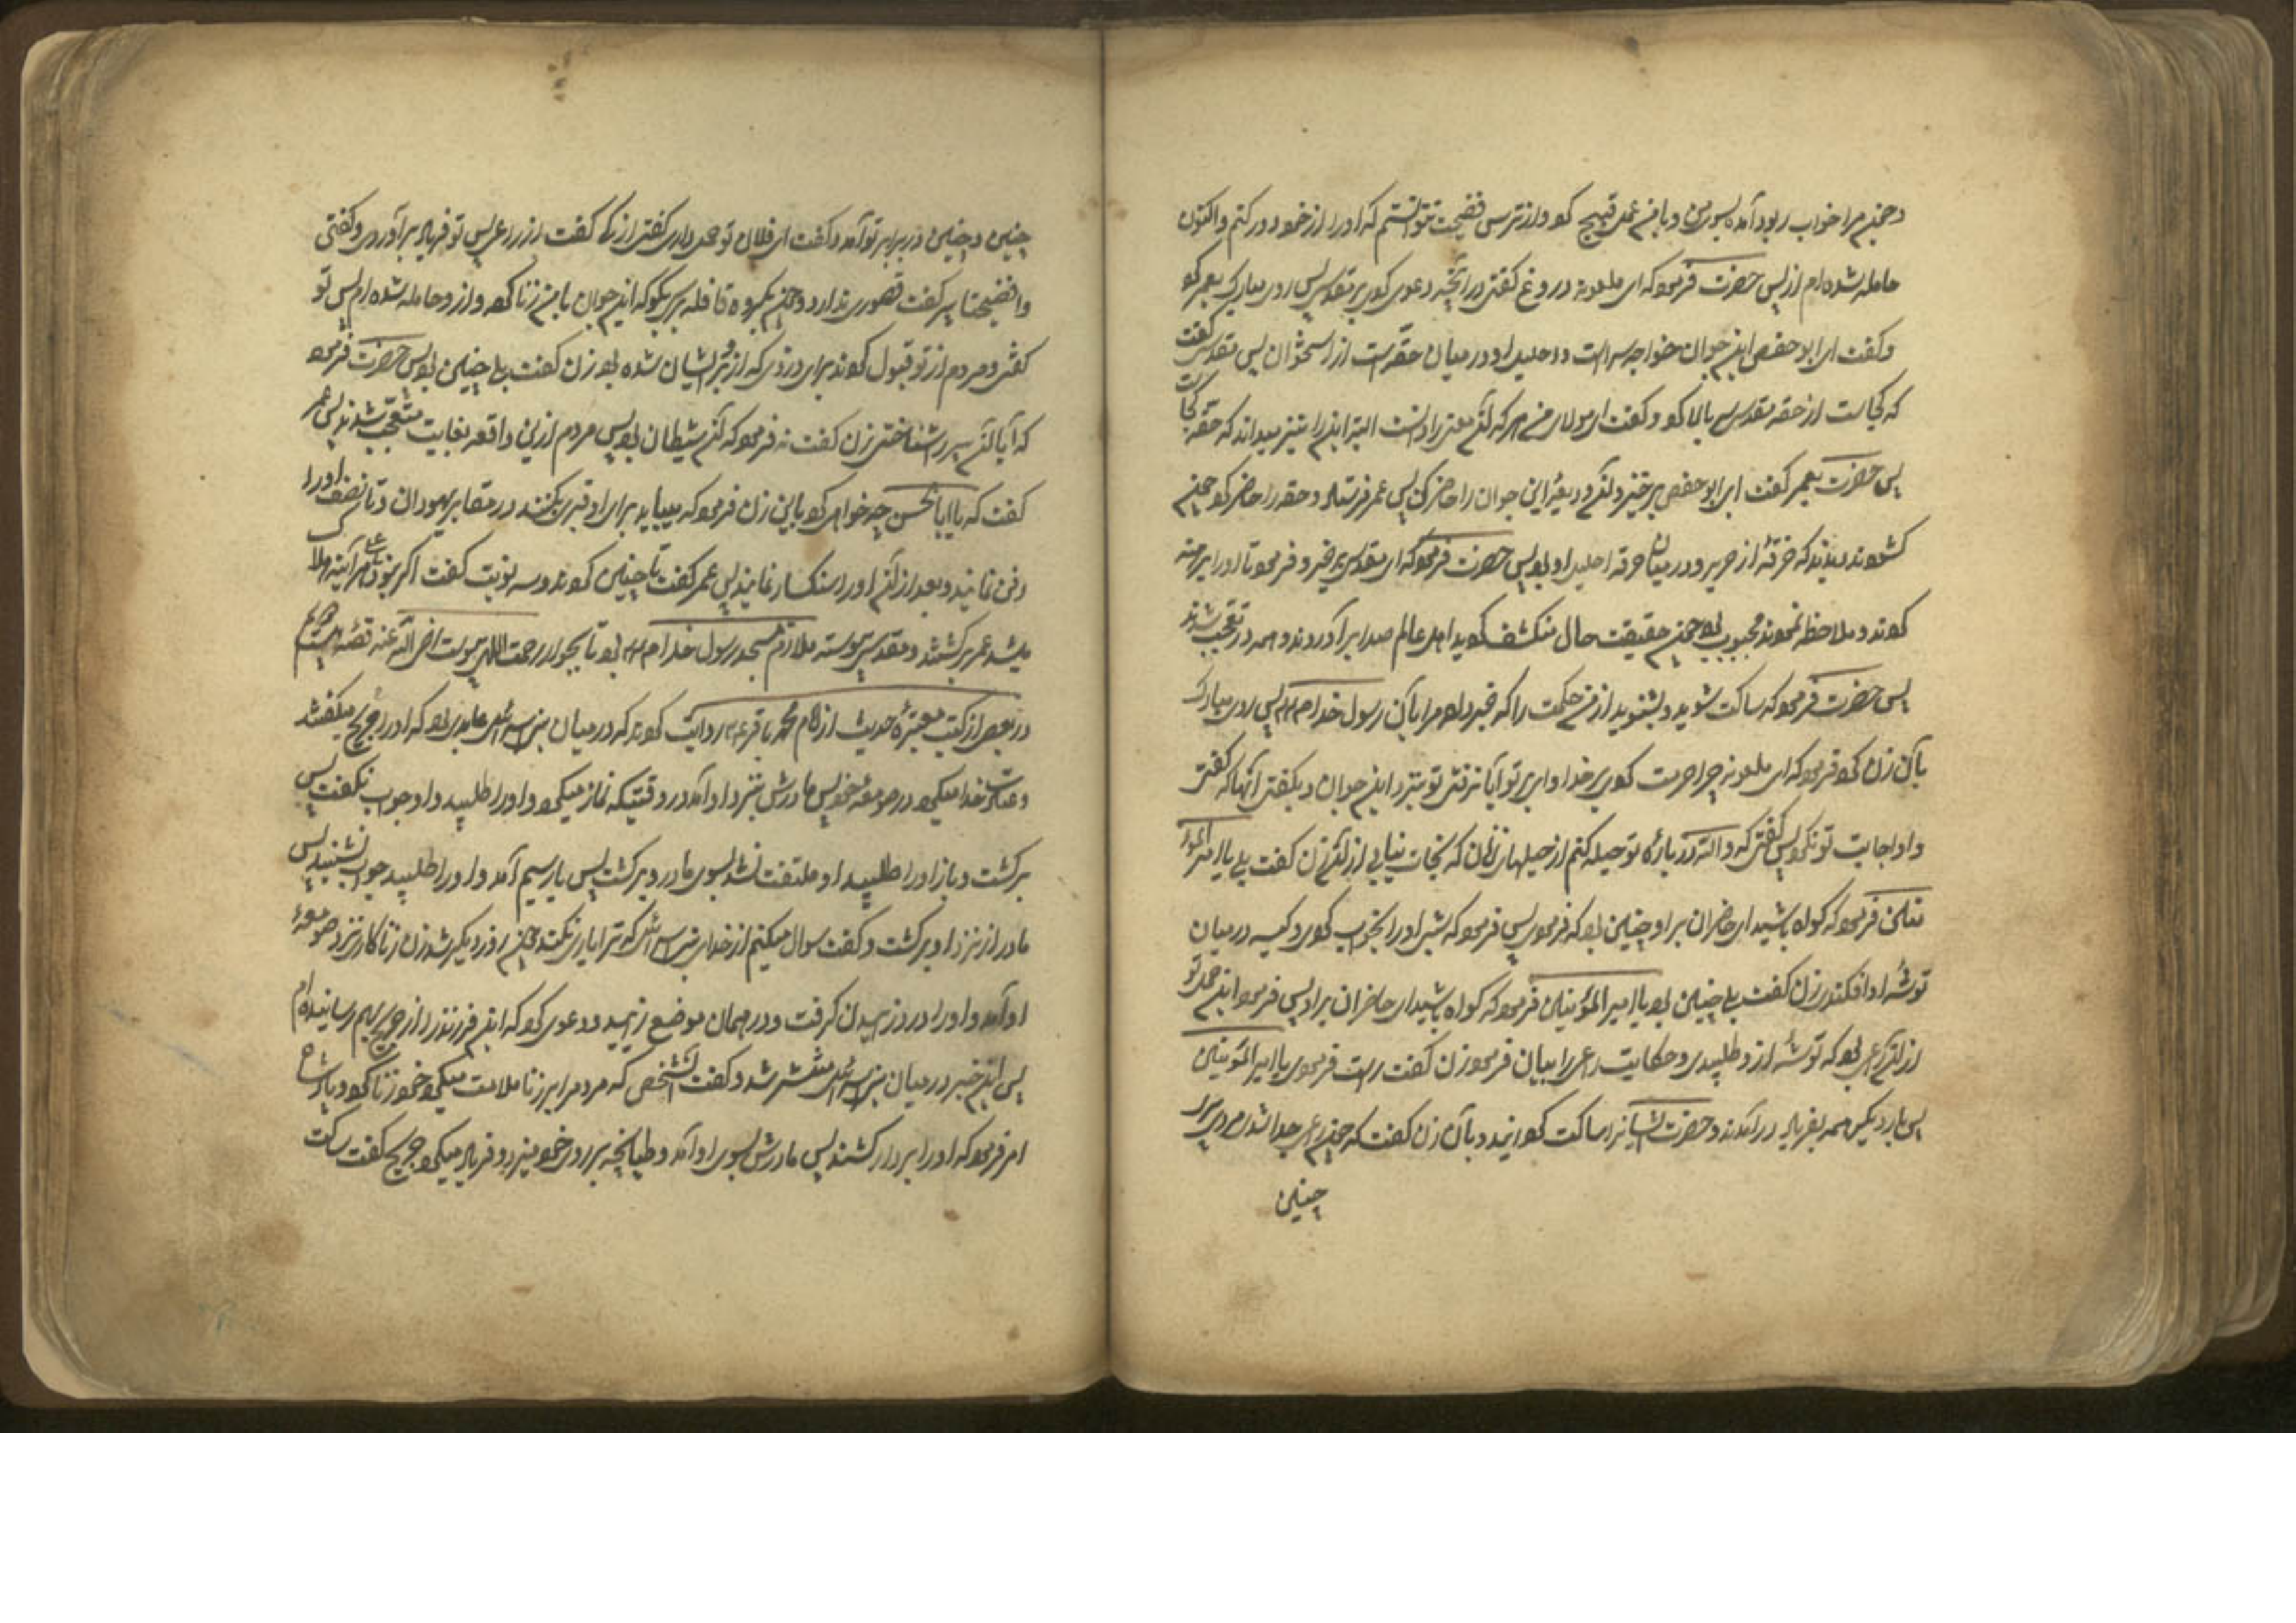 و چون مرا خواب ربود آمد بسوی من و با من عمل قبیح کرد و از ترس فضیحت نتوانستم که او را از خود دور کنم و اکنون
حامله شده‌ام از پس حضرت فرمود که ای ملعونه دروغ گفتی در آنچه دعوی کردی بر مقدس پس روی مبارک بعمر کرد
و گفت ای ابو حفص این جوان خواجه سراست و احلیل او در میان حقه‌ایست از استخوان پس مقدس گفت
که کجاست آن حقه مقدس سر بالا کرد و گفت ای مولای من هر که آن معنی را دانست البته این را نیز میداند که حقه کجاست
پس حضرت بعمر گفت ای ابو حفص برخیز و آن ودیعهٔ این جوان را حاضر کن پس عمر فرستاد و حقه را حاضر کرد چون
گشودند دیدند که خرقهٔ از حریر و در میان خرقه احلیل او بود پس حضرت فرمود که ای مقدس برخیز و فرمود تا او را برهنه
کردند و ملاحظه نمودند محبوب بود چون حقیقت حال منکشف گردید اهل عالم صدا برآوردند و همه در تعجب شدند
پس حضرت فرمود که ساکت شوید و بشنوید از من حکمت را که خبر داده مرا بآن رسول خدا پس روی مبارک
بآن زن کرد فرمود که ای ملعونه چرا جرءت کردی بر خدا وای بر تو آیا نرفتی تو بنزد این جوان و بگفتی آنها که گفتی
و او اجابت تو نکرد پس گفتی که والله در باره تو حیله کنم از حیلهای زنان که نجات نیابی از آن زن گفت بلی یا امیر المؤمنین
فرمود که گواه باشید ای حاضران بر او چنین بود که فرمودی پس فرمود که شب او را بخواب کردی و کیسه در میان
توشهٔ او افکندی زن گفت بلی چنین بود یا امیر المؤمنین فرمود که گواه باشید ای حاضران بر او پس فرمود این حمل تو
از آن راعی بود که توشه از و طلبیدی و حکایت راعی را بیان فرمود زن گفت راست فرمودی یا امیر المؤمنین
پس بار دیگر همه بفریاد درآمدند و حضرت ایشانرا ساکت گردانید و بآن زن گفت که چون از راعی جدا شدی پیری
چنین
چنین و چنین در برابر تو آمد و گفت ای فلان تو حمل داری گفتی از که گفت از راعی پس تو فریاد برآوردی و گفتی
وا فضیحتا پیر گفت قصوری ندارد چون بگروه قافله برسی بگو که این جوان با من زنا کرد و از و حامله شده‌ام پس تو
گفتی و مردم از تو قبول کردند برای دزدی که از و بر ایشان شده بود زن گفت بلی چنین بود پس حضرت فرمود
که آیا آن پیر را شناختی زن گفت نه فرمود که آن شیطان بود پس مردم ازین واقعه بغایت متعجب شدند پس عمر
گفت که یا ابا الحسن چه خواهی کرد باین زن فرمود که میباید برای او قبری بکنند در مقابر یهودان و تا نصف او را
دفن نمایند و بعد از آن او را سنکسار نمایند پس عمر گفت تا چنین کردند و سه نوبت گفت اگر نبود علی هر آینه هلاک
میشد عمر برگشتند و مقدس پیوسته ملازم مسجد رسول خدا بود تا بجوار رحمت الهی پیوست رضی الله عنه قصهٔ
در بعضی از کتب معتبرهٔ حدیث از امام محمد باقر ع روایت کردند که در میان بنی اسرائیل عابدی بود که او را جریح میگفتند
و عبادت خدا میکرد در صومعهٔ خود پس مادرش بنزد او آمد در وقتیکه نماز میکرد و او را طلبید و او جواب نگفت پس
برگشت و باز او را طلبید او ملتفت نشد بسوی مادر و برگشت پس بار سیم آمد و او را طلبید جواب نشنید پس
مادر از نزد او برگشت و گفت سوال میکنم از خدای بنی اسرائیل که ترا یاری نکند چون روز دیگر شد زن زناکار نزد صومعهٔ
او آمد و او را درد زاییدن گرفت و در همان موضع زایید و دعوی کرد که این فرزند را از جریح بهم رسانیده‌ام
پس این خبر در میان بنی اسرائیل منتشر شد و گفت آنشخص که مردم را بر زنا ملامت میکرد خود زنا کرد و پادشاه
امر فرمود که او را بردار کشند پس مادرش بسوی او آمد و طپانچه بر روی خود میزد و فریاد میکرد جریح گفت ساکت